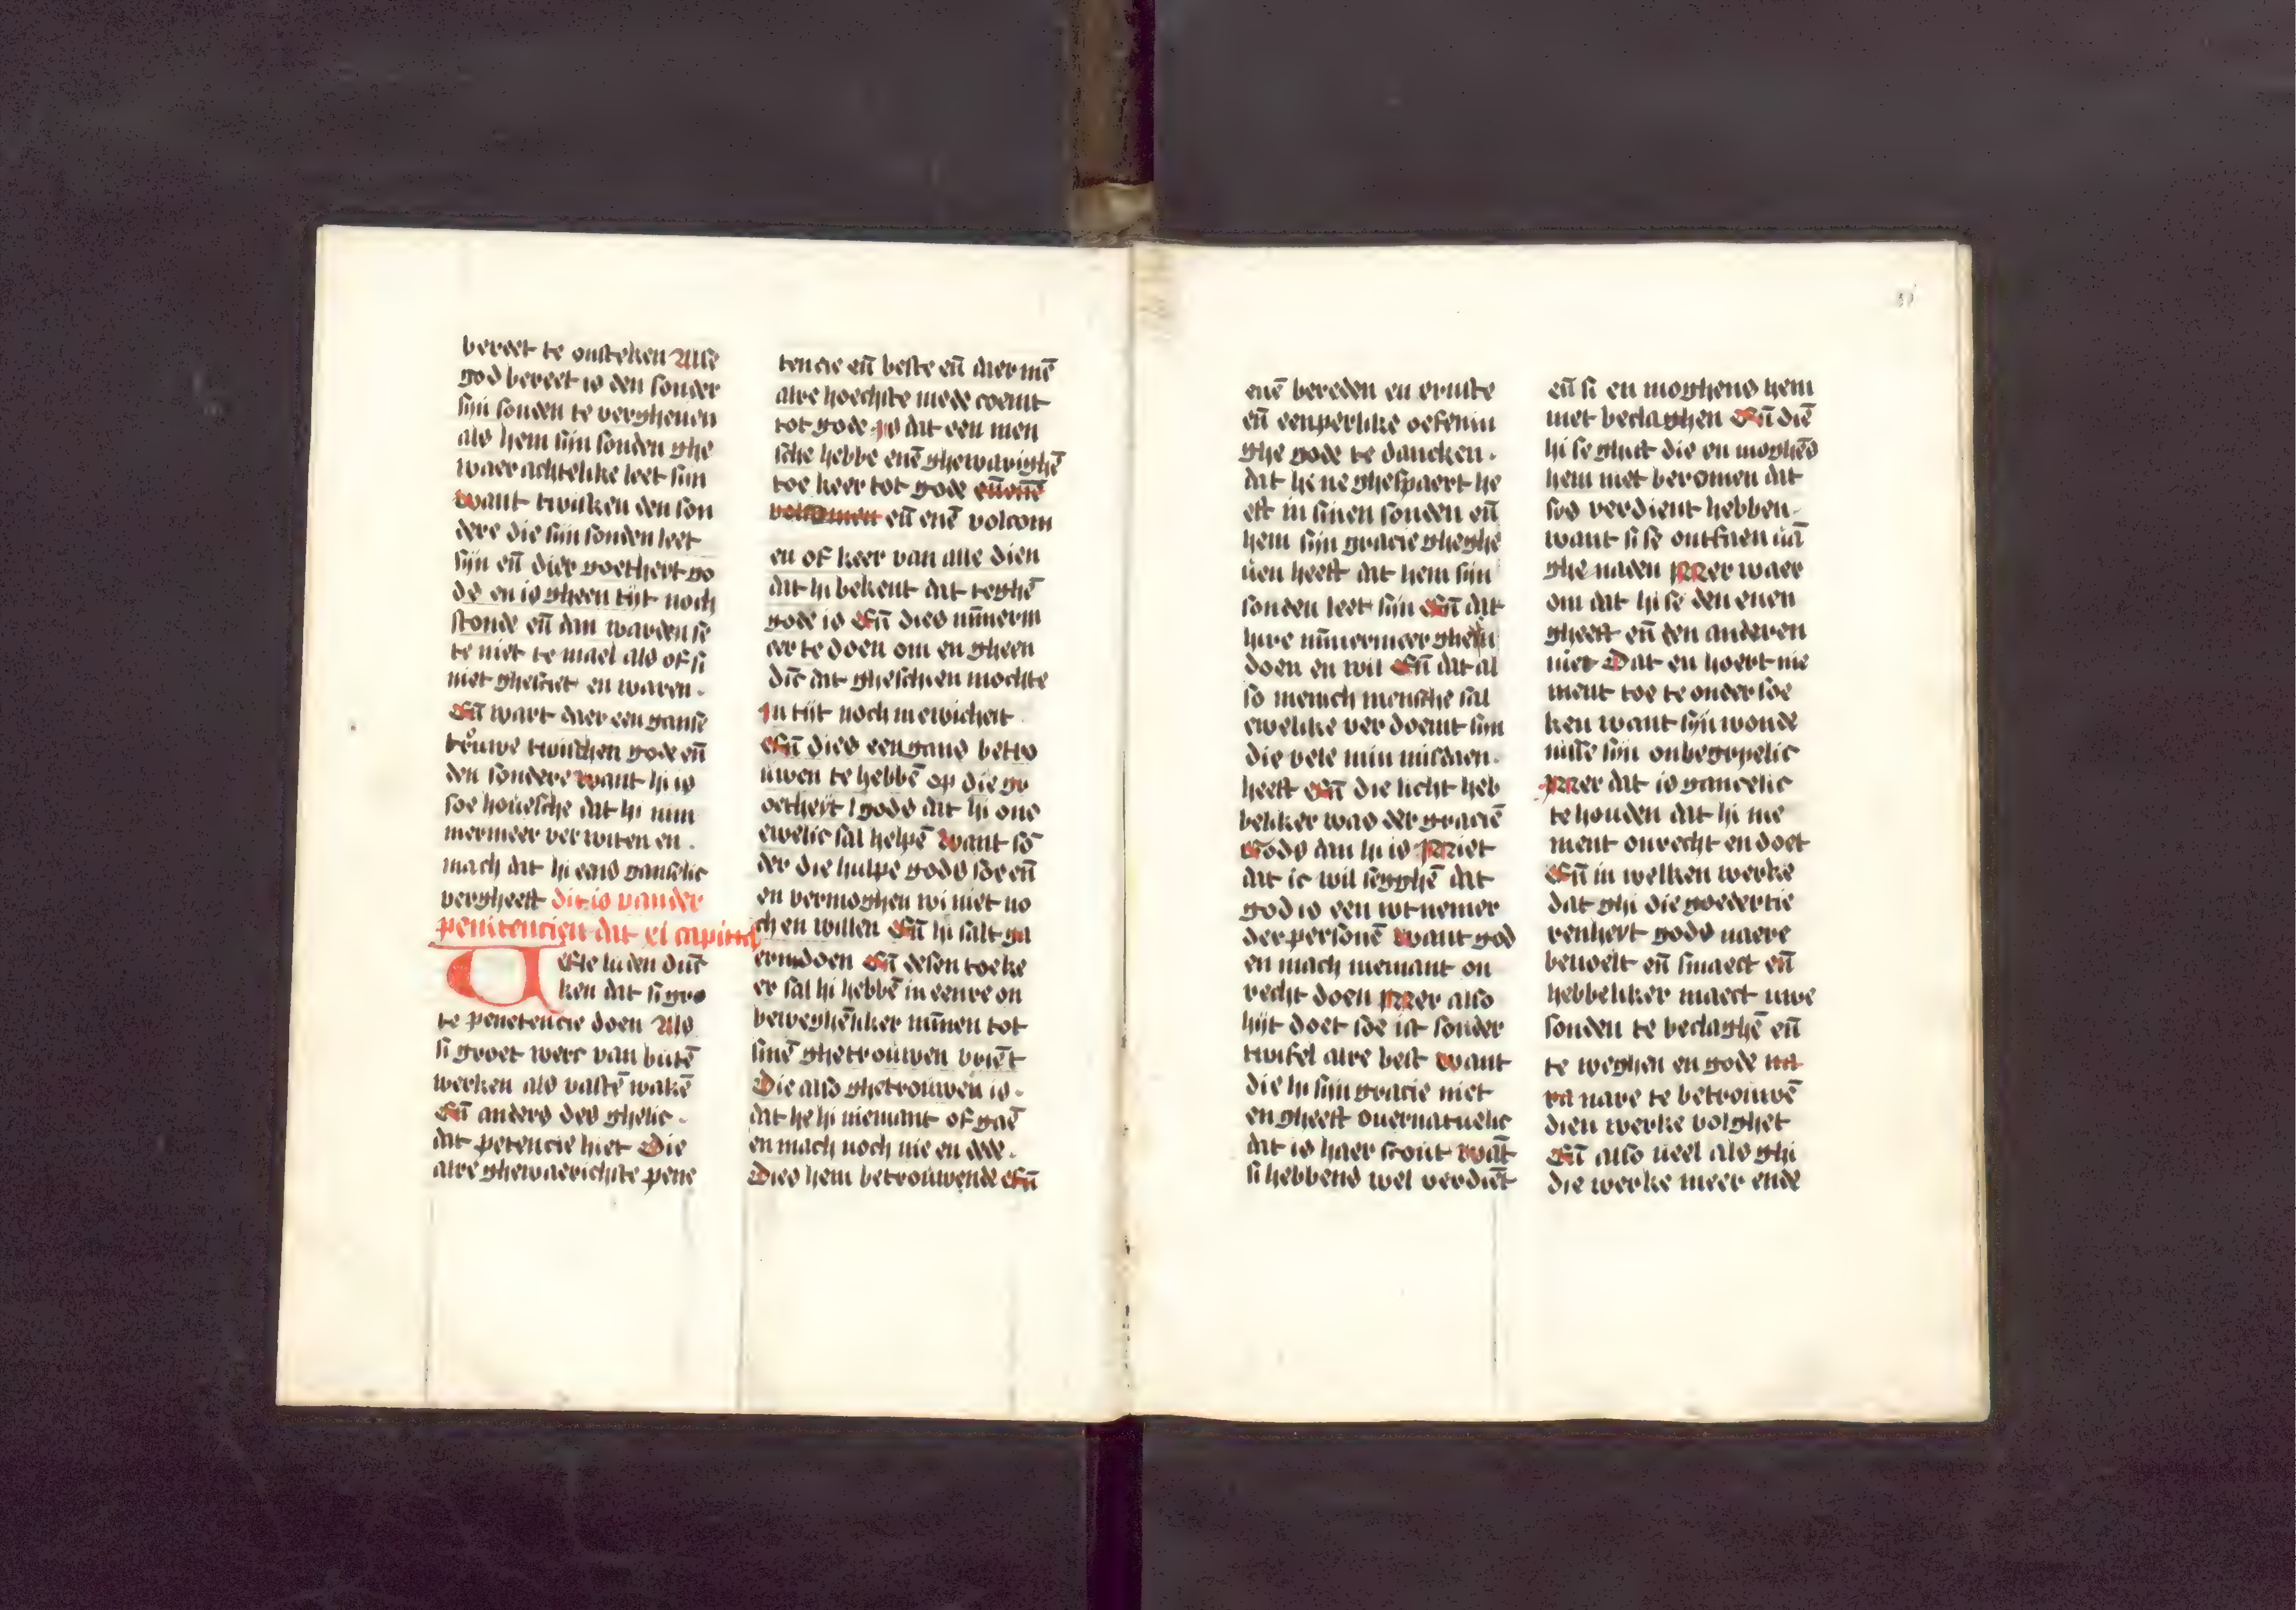 bereet te ontsteken Alse
god bereet is den sonder
sijn sonden te vergheuen
als hem sijn sonden ghe
waerachtelike leet sijn
want twisken den son
dere die sijn sonden leet
sijn en̄ dier goethert go
ds en is gheen tijt noch
stonde en̄ dan warden se
te niet te mael als of si
niet ghesciet en waren.
En̄ wart daer een ganse
trouwe twisschen gode en̄
den sondere want hi is
soe houesche dat hi nim
mermeer verwiten en.
mach dat hi eens ganselic
vergheeft dit is vander
penitencien dat xl capittel
Uele luden dunc
ken dat si gro
te penetencie doen Als
si groet werc van butē
werken als vastē wakē
En̄ anders des ghelic.
dat petencie hiet Die
alre ghewaerichste pene
tencie en̄ beste en̄ daer mē
alre hoechste mede coemt
tot gode is dat een men
sche hebbe enē ghewarighē
toe keer tot gode en̄ enē
volcomen en̄ enē volcom
en of keer van alle dien
dat hi bekent dat teghē
gode is En̄ dies nūmerm
eer te doen om en gheen
dīc dat ghescien mochte
In tijt noch in ewicheit
En̄ dies een gans betro
uwen te hebbē op die go
ethеyt gods dat hi ons
ewelic sal helpē want sō
der die hulpe gods soe en̄
en vermoghen wi niet no
ch en willen En̄ hi salt ga
ern doen En̄ desen toe ke
er sal hi hebbē in eenre on
beweghēliker mīnen tot
sinē ghetrouwen vriēt
Die also ghetrouwen is.
dat he hi niemant of gaē
en mach noch nie en dede.
Dies hem betrouwende En̄
enē bereden en ernste
en̄ eenperlike oefenin
ghe gode te dancken.
dat hi ne ghespaert he
eft in sinen sonden en̄
hem sijn gracie gheghe
uen heeft dat hem sijn
sonden leet sijn En̄ dat
hire nīmermeer gheen
doen en wil En̄ dat al
so menich mensche sal
ewelike verdoemt sijn
die vele min misdaen.
heeft En̄ die licht heb
bekker was der graciē
Gods dan hi is Niet
dat ic wil segghē dat
god is een wtnemer
der personē want god
en mach niemant on
recht doen Mer also
hijt doet soe ist sonder
twifel alre best want
die hi sijn gracie niet
en gheeft ouernatuelic
dat is haer scout wāt
si hebbens wel verdiēt
en̄ si en moghens hem
niet beclaghen En̄ diē
hi se ghift die en moghēs
hem niet beromen dat
sós verdient hebben.
want si se ontfaen uā
ghenaden Mer waer
om dat hi se den enen
gheeft en̄ den anderen
niet Dat en hoert nie
ment toe te ondersoe
ken want sijn wonde
nisse sijn onbegripelic
Mer dat is gancelic
te houden dat hi nie
ment onrecht en doet
En̄ in welken werke
dat ghi die goedertie
renheyt gods naere
beuoelt en̄ smaect en̄
hebbeliker maect uwe
sonden te beclaghē en̄
te weghen en gode na
ra nare te betrouwē
dien werke volghet
En̄ also ueel als ghi
die werke meer ende